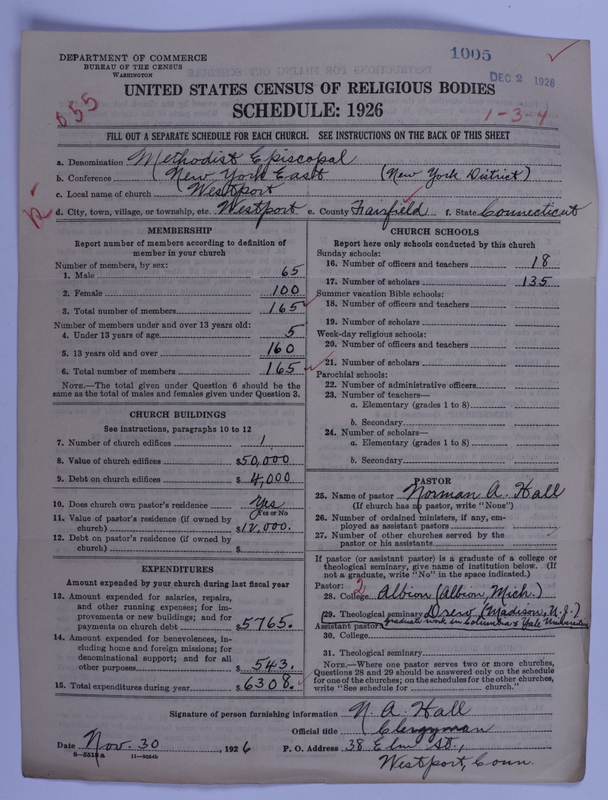 1005
DEPARTMENT OF COMMERCE
BUREAU OF THE CENSUS
WASHINGTON
DEC 2 1926
UNITED STATES CENSUS OF RELIGIOUS BODIES
SCHEDULE: 1926
655
1-3-4
FILL OUT A SEPARATE SCHEDULE FOR EACH CHURCH. SEE INSTRUCTIONS ON THE BACK OF THIS SHEET
a. Denomination Methodist Episcopal
b. Conference New York East (New York District)
c. Local name of church Westport
d. City, town, village, or township, etc. Westport e. County Fairfield f. State Connecticut
MEMBERSHIP
Report number of members according to definition of
member in your church
Number of members, by sex:
1. Male 65
2. Female 100
3. Total number of members 165
Number of members under and over 13 years old:
4. Under 13 years of age 5
5. 13 years old and over 160
6. Total number of members 165
NOTE.—The total given under Question 6 should be the
same as the total of males and females given under Question 3.
CHURCH BUILDINGS
See instructions, paragraphs 10 to 12
7. Number of church edifices 1
8. Value of church edifices $50,000
9. Debt on church edifices $ 4,000
10. Does church own pastor's residence Yes
Yes or No
11. Value of pastor's residence (if owned by
church) $12,000.
12. Debt on pastor's residence (if owned by
church) $
EXPENDITURES
Amount expended by your church during last fiscal year
13. Amount expended for salaries, repairs,
and other running expenses; for im-
provements or new buildings; and for
payments on church debt $5765.
14. Amount expended for benevolences, in-
cluding home and foreign missions; for
denominational support; and for all
other purposes $ 543.
15. Total expenditures during year $ 6308.
CHURCH SCHOOLS
Report here only schools conducted by this church
Sunday schools:
16. Number of officers and teachers 18
17. Number of scholars 135
Summer vacation Bible schools:
18. Number of officers and teachers
19. Number of scholars
Week-day religious schools:
20. Number of officers and teachers
21. Number of scholars
Parochial schools:
22. Number of administrative officers
23. Number of teachers—
a. Elementary (grades 1 to 8)
b. Secondary
24. Number of scholars—
a. Elementary (grades 1 to 8)
b. Secondary
PASTOR
25. Name of pastor Norman A. Hall
(If church has no pastor, write "None")
26. Number of ordained ministers, if any, em-
ployed as assistant pastors
27. Number of other churches served by the
pastor or his assistants
If pastor (or assistant pastor) is a graduate of a college or
theological seminary, give name of institution below. (If
not a graduate, write "No" in the space indicated.)
Pastor: 2
28. College Albion (Albion, Mich.)
29. Theological seminary Drew (Madison, N.J.)
Assistant pastor: graduate work in Columbia & Yale Universities
30. College
31. Theological seminary
NOTE.—Where one pastor serves two or more churches,
Questions 28 and 29 should be answered only on the schedule
for one of the churches; on the schedules for the other churches,
write "See schedule for church."
Signature of person furnishing information N. A. Hall
Official title Clergyman
Date Nov. 30, 1926 P. O. Address 38 Elm St.,
Westport, Conn.